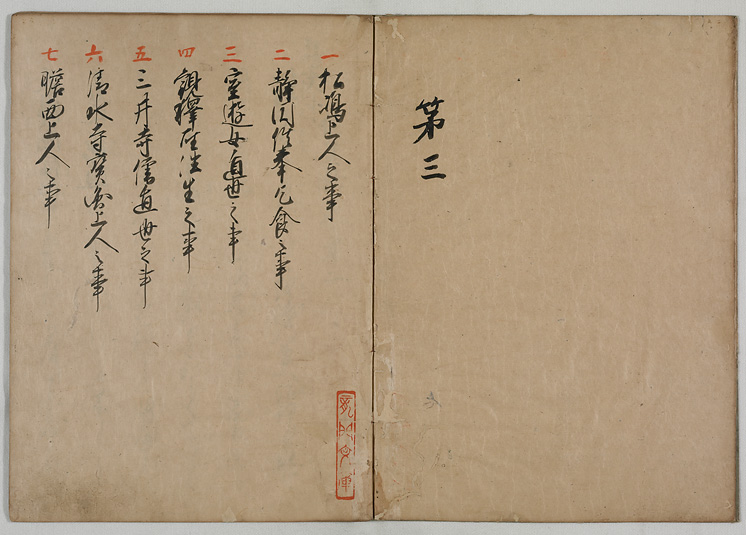 第三
一 松嶋上人之事
二 静円供奉乞食之事
三 室遊女遁世之事
四 往生之事
五 三井寺僧遁世之事
六 清水寺寳日上人之事
七 瞻西上人之事
龍門文庫